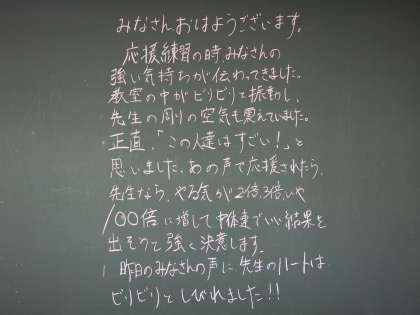 みなさんおはようございます。
応援練習の時、みなさんの
強い気持ちが伝わってきました。
教室の中がビリビリと振動し、
先生の周りの空気も震えていました。
正直、「この人達はすごい!」と
思いました。あの声で応援されたら、
先生なら、やる気が2倍、3倍、いや
100倍に増して中体連でいい結果を
出そうと強く決意します。
昨日のみなさんの声に、先生のハートは
ビリビリとしびれました!!